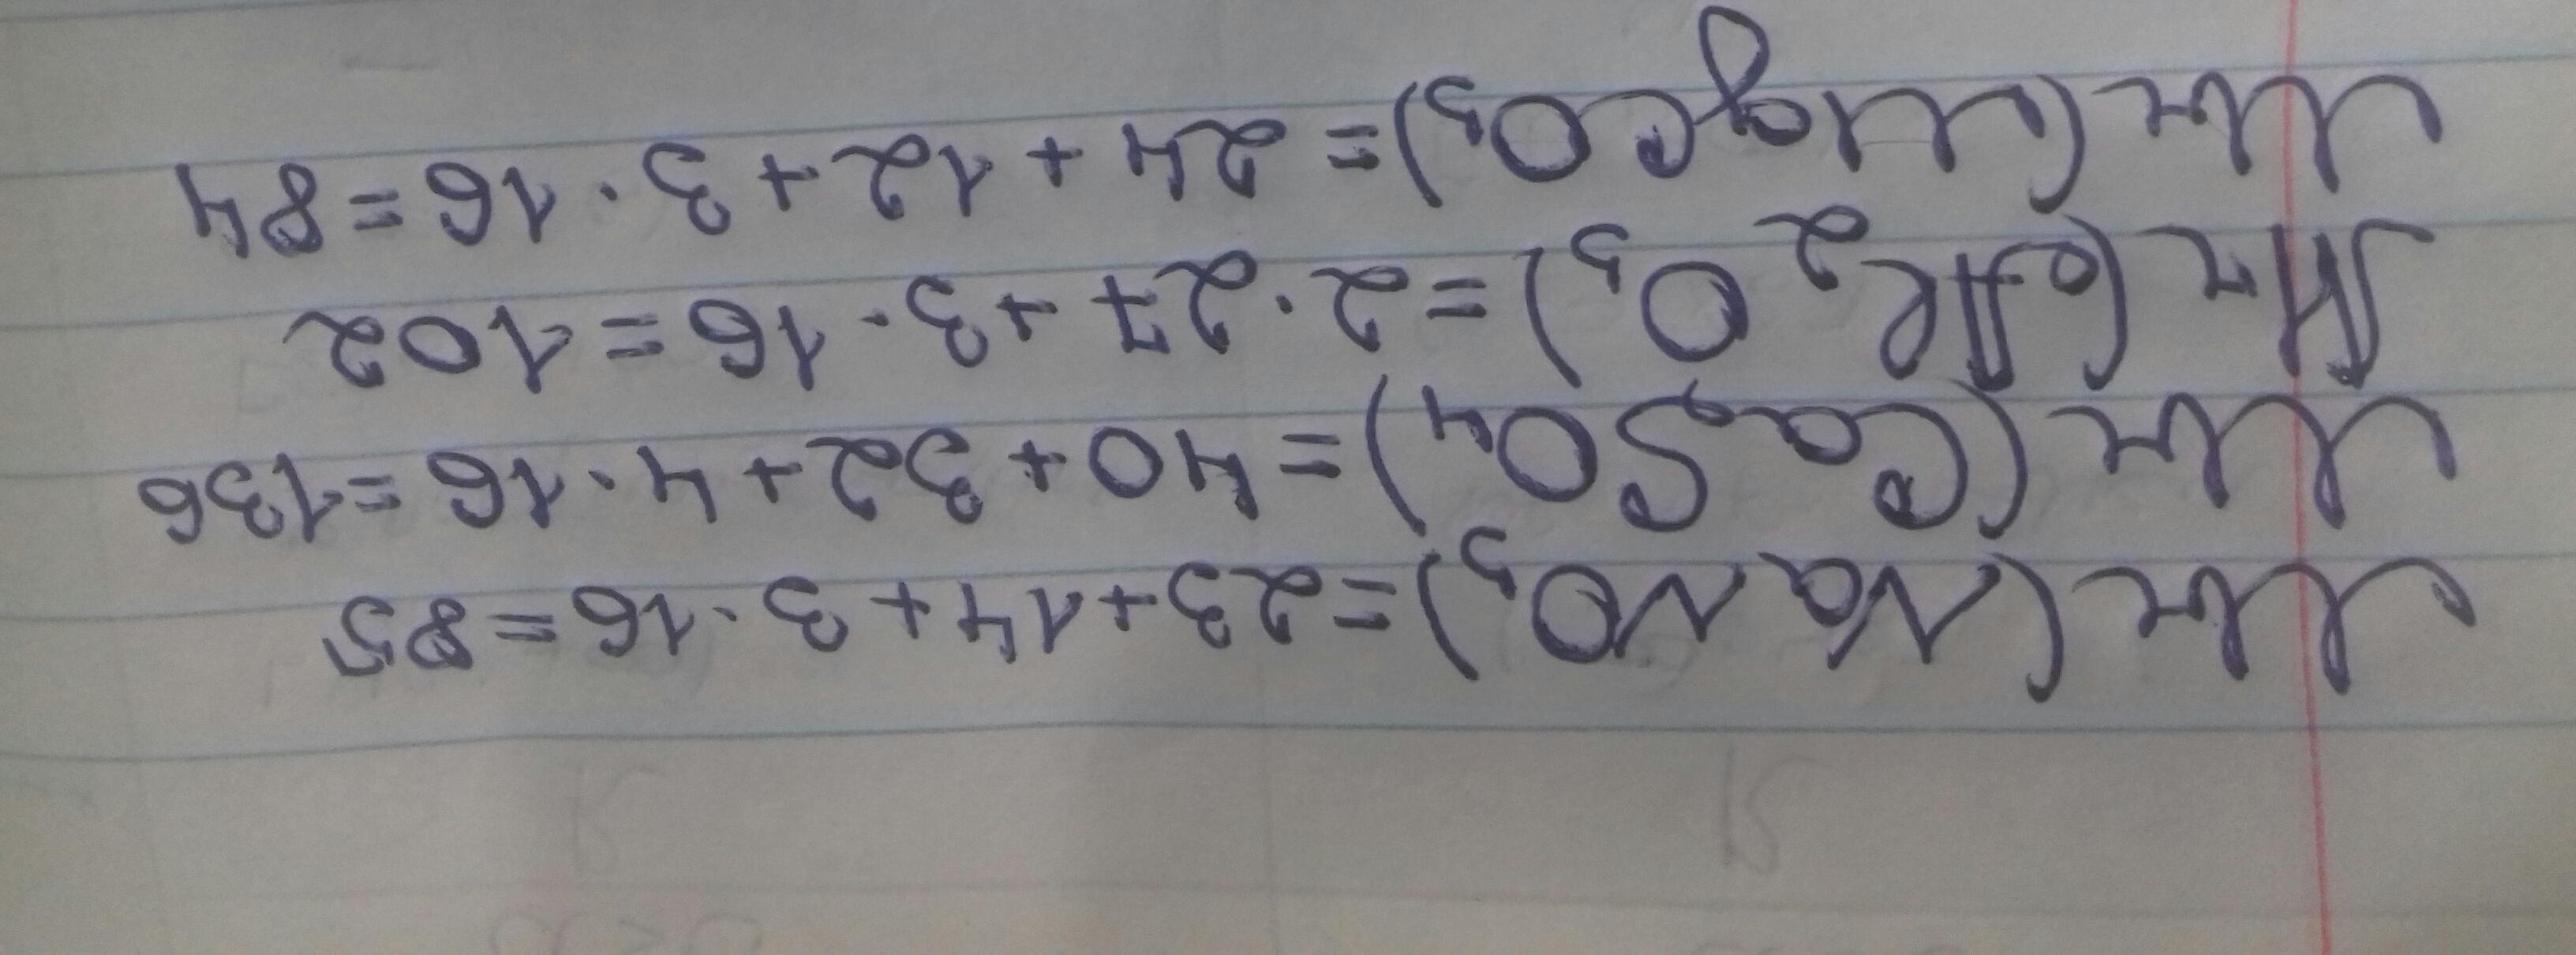 Mr(NaNO₃)=23+14+3·16=85
Mr(CaSO₄)=40+32+4·16=136
Mr(Al₂O₃)=2·27+3·16=102
Mr(MgCO₃)=24+12+3·16=84